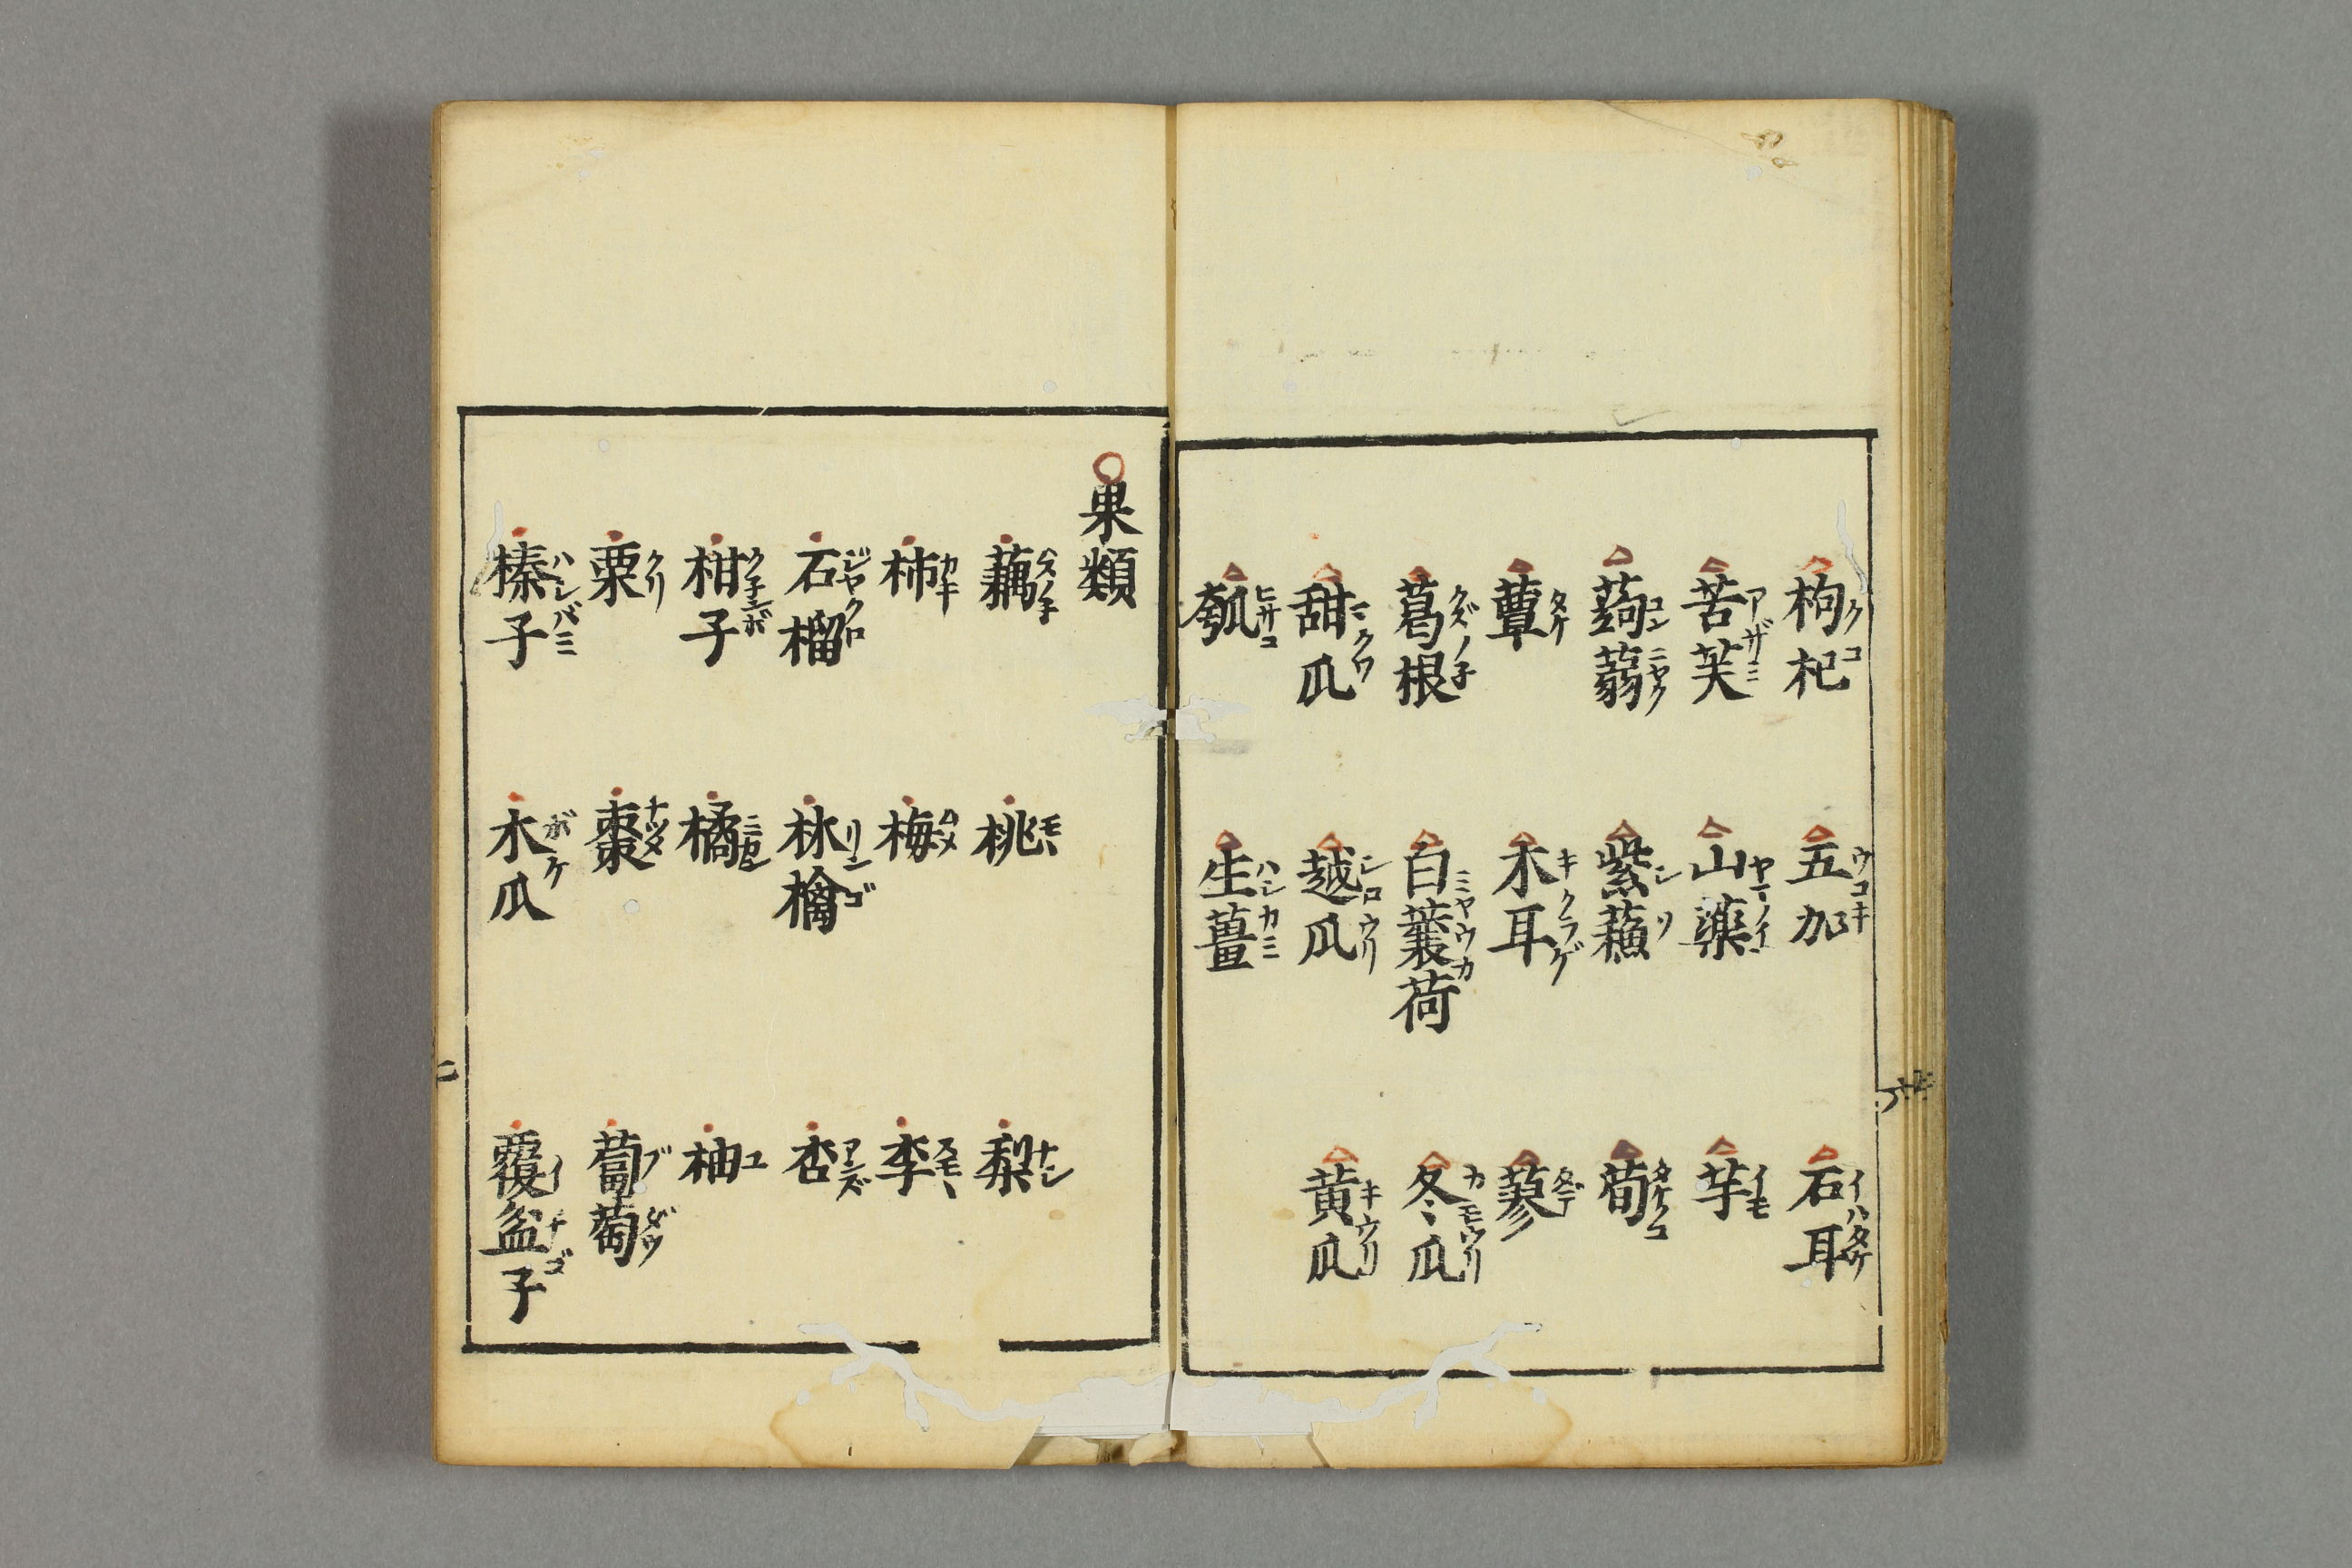 枸杞 クコ 五加 ウコキ 石耳 イハタケ
苦芙 アザミ 山藥 ヤマノイモ 芋 イモ
蒟蒻 コンニヤク 紫蘓 シソ 筍 タケノコ
蕈 タケ 木耳 キクラゲ 蓼 タデ
葛根 クズノ子 白蘘荷 ミヤウカ 冬瓜 カモウリ
甜瓜 マクワ 越瓜 シロウリ 黄瓜 キウリ
瓠 ヒサコ 生薑 ハシカミ
果類
藕 ハスノ子 桃 モヽ 梨 ナシ
柿 カキ 梅 ムメ 李 スモヽ
石榴 ジヤクロ 林檎 リンゴ 杏 アンズ
柑子 クネンボ 橘 柚 ユ
栗 クリ 棗 ナツメ 蔔萄 ブダウ
榛子 ハシバミ 木瓜 ボケ 覆盆子 イチゴ
二